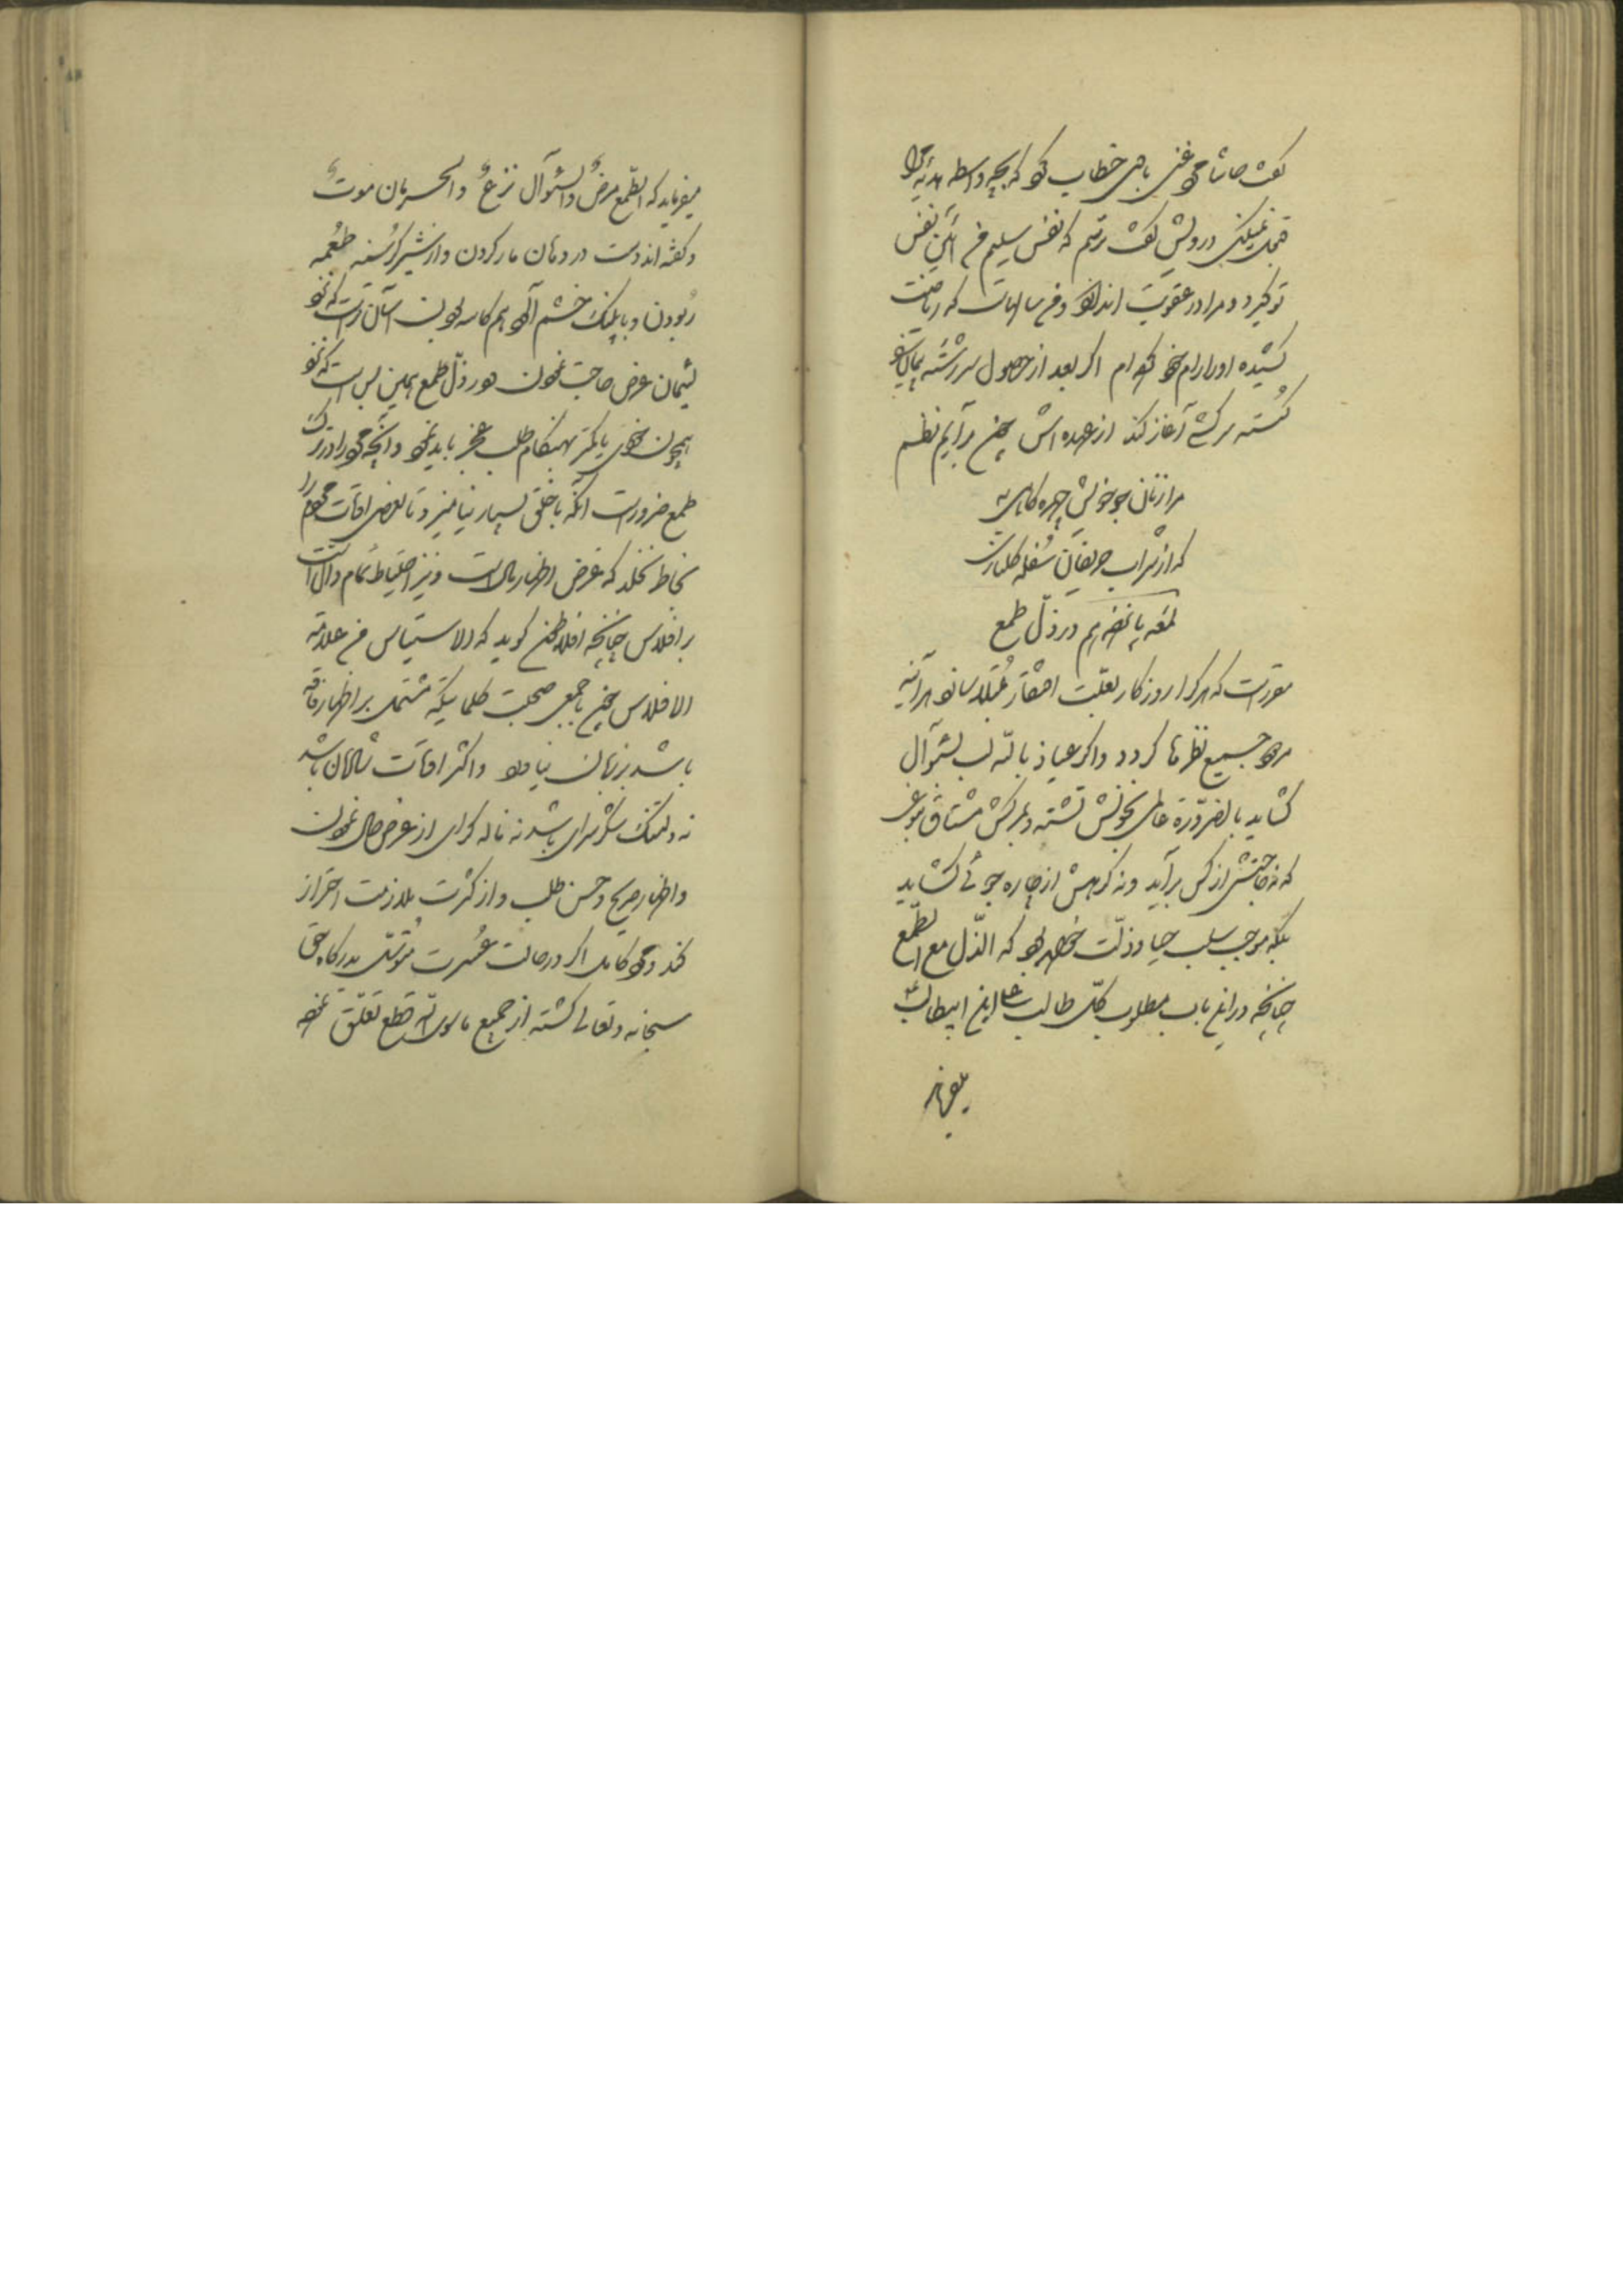 گفت حاشا مرد غنی با من خطاب کرد که بچه واسطه هدیه مرا
قبول نمیکنی درویش گفت ترسم که نفس سلیم من آئین نفس
تو گیرد و مرا در عقوبت اندازد و من سالهاست که ریاضت
کشیده او را رام خود کرده‌ام اگر بعد از حصول سررشته
گسسته سرکشی آغاز کند از عهده‌اش چون برآیم نظم
مرا ز نان جو خویش چهره کاهی به
که از شراب حریفان سفله گلناری
لمعه پانزدهم در ذل طمع
مقررست که هر کرا روزگار بعلت افتقار مبتلا ساخت هرآینه
مردود جمیع نظرها گردد و اگر عیاذ بالله لب بسؤال
گشاید بالضرورة عالمی بخونش تشنه و بمرگش مشتاق شوند
که نه حاجتش از کس برآید و نه گرهش از چاره جوئی گشاید
بلکه موجب سلب حیا و ذلت خواهد بود که الذل مع الطمع
چنانچه در این باب مطلوب کل طالب علی ابن ابیطالب
میفرماید
میفرماید که الطمع مرض والسؤال نزع والحرمان موت
و گفته‌اند دست در دهان مار کردن و از شیر گرسنه طعمه
ربودن و با پلنگ خشم آلود هم کاسه بودن آسان ترست که نزد
لئیمان عرض حاجت نمودن و در ذل طمع همین بس است که نزد
همچون خودی یا کمتر بهنگام طلب عجز باید نمود و آنچه مرد را در ترک
طمع ضرورست آنکه با خلق بسیار نیامیزد تا بعضی اوقات مردم را
بخاطر نخلد که غرض اظهار حال است و نیز اختلاط تمام دال است
بر افلاس چنانچه افلاطون گوید که الاستیناس من علامة
الافلاس چون با جمعی صحبت کلماتیکه مشتمل بر اظهار فاقه
باشد بزبان نیاورد و اکثر اوقات شادمان باشد
نه دلتنگ شکرسرای باشد نه ناله گرای از عرض حال نمودن
و اظهار صریح و حسن طلب و از کثرت ملازمت احتراز
کند و مرد کامل اگر در حالت عسرت متوسل بدرگاه حق
سبحانه و تعالی گشته از جمیع ماسوی الله قطع تعلق نموده